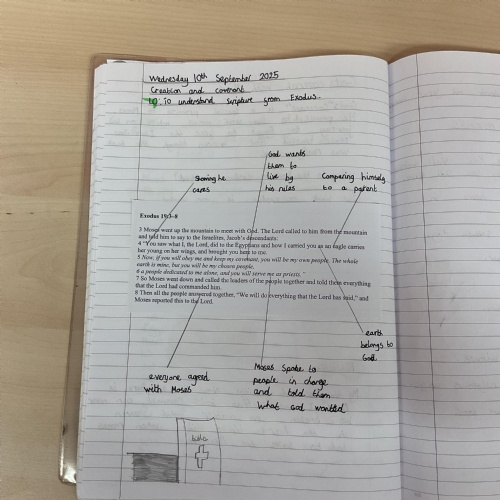 Wednesday 10th September 2025
Creation and covenant
LO: To understand scripture from Exodus.
God wants
them to
live by
his rules
Showing he
cares
Comparing himself
to a parent
Exodus 19:3-8
3 Moses went up the mountain to meet with God. The Lord called to him from the mountain
and told him to say to the Israelites, Jacob's descendants:
4 "You saw what I, the Lord, did to the Egyptians and how I carried you as an eagle carries
her young on her wings, and brought you here to me.
5 Now, if you will obey me and keep my covenant, you will be my own people. The whole
earth is mine, but you will be my chosen people,
6 a people dedicated to me alone, and you will serve me as priests."
7 So Moses went down and called the leaders of the people together and told them everything
that the Lord had commanded him.
8 Then all the people answered together, "We will do everything that the Lord has said," and
Moses reported this to the Lord.
earth
belongs to
God.
everyone agreed
with Moses
Moses spoke to
people in charge
and told them
what God wanted